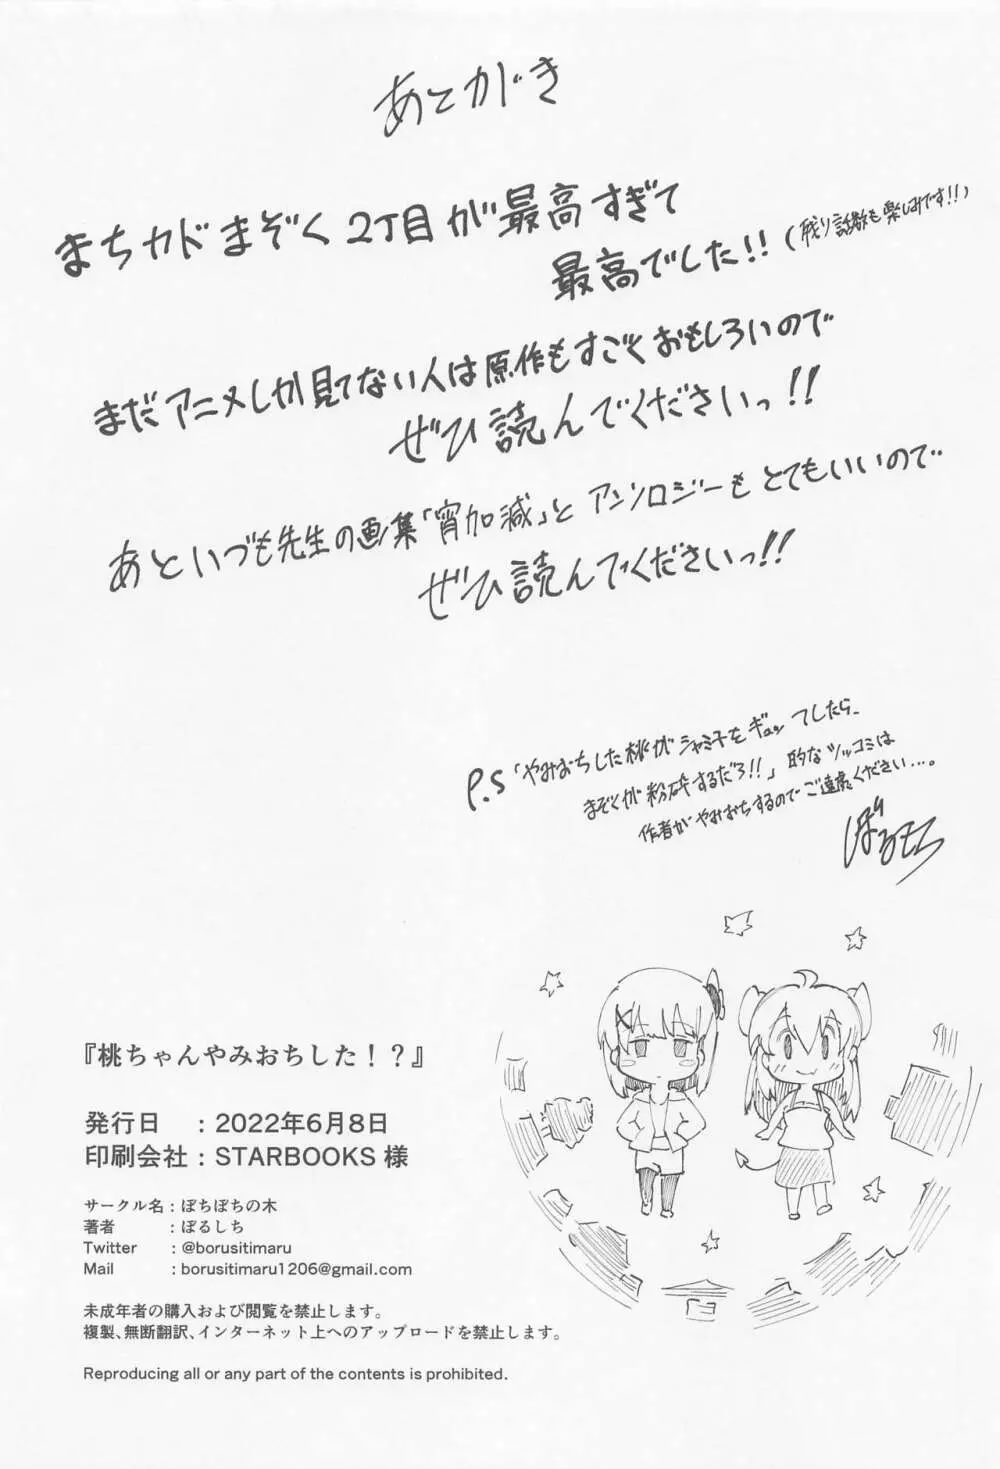 あとがき
まちカドまぞく2丁目が最高すぎて
最高でした!!(残り話数も楽しみです!!)
まだアニメしか見てない人は原作もすごくおもしろいので
ぜひ読んでくださいっ!!
あといづも先生の画集「宵加減」とアンソロジーもとてもいいので
ぜひ読んでくださいっ!!
P.S「やみおちした桃がシャミ子をギュッてしたら、
まぞくが粉砕するだろ!!」的なツッコミは
作者がやみおちするのでご遠慮ください…。
ぼるしち
『桃ちゃんやみおちした!?』
発行日 : 2022年6月8日
印刷会社 : STARBOOKS 様
サークル名 : ぽちぽちの木
著者 : ぼるしち
Twitter : @borusitimaru
Mail : borusitimaru1206@gmail.com
未成年者の購入および閲覧を禁止します。
複製、無断翻訳、インターネット上へのアップロードを禁止します。
Reproducing all or any part of the contents is prohibited.